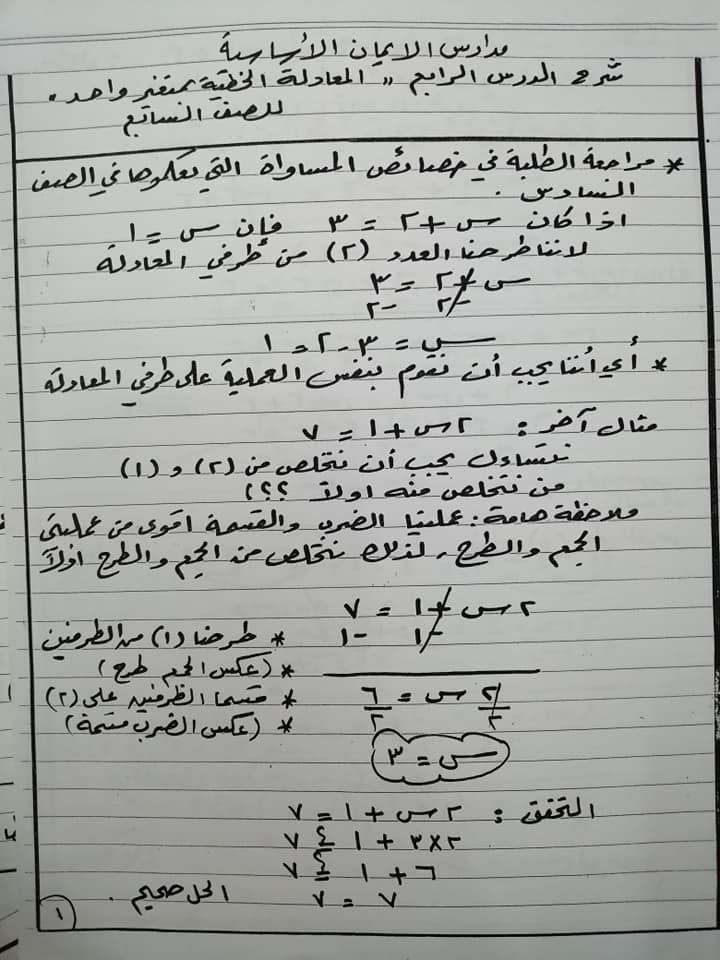 مدارس الايمان الأساسية
شرح الدرس الرابع " المعادلة الخطية بمتغير واحد .
للصف السابع
* مراجعة الطلبة في خصائص المساواة التي تعلموها في الصف
السادس .
اذا كان س + ٢ = ٣ فإن س = ١
لاننا طرحنا العدد (٢) من طرفي المعادلة
س + ٢ = ٣
-٢ -٢
س = ٣ - ٢ = ١
* أي أننا يجب أن نقوم بنفس العملية على طرفي المعادلة
مثال آخر : ٢س + ١ = ٧
نتساءل يجب أن نتخلص من (٢) و (١)
من نتخلص منه اولاً ؟؟!
ملاحظة هامة : عمليتا الضرب والقسمة اقوى من عمليتي
الجمع والطرح ، لذلك نتخلص من الجمع والطرح اولاً
٢س + ١ = ٧
-١ -١ * طرحنا (١) من الطرفين
* (عكس الجمع طرح)
٢س = ٦ * قسمنا الطرفين على (٢)
٢ ٢ * (عكس الضرب قسمة)
س = ٣
التحقق : ٢س + ١ = ٧
٢×٣ + ١ ≟ ٧
٦ + ١ ≟ ٧
٧ = ٧ الحل صحيح .
١